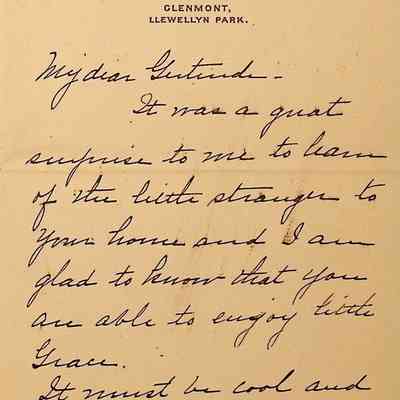 GLENMONT,
LLEWELLYN PARK.
My dear Gertrude -
It was a great
surprise to me to learn
of the little stranger to
your home and I am
glad to know that you
are able to enjoy little
Grace.
It must be cool and